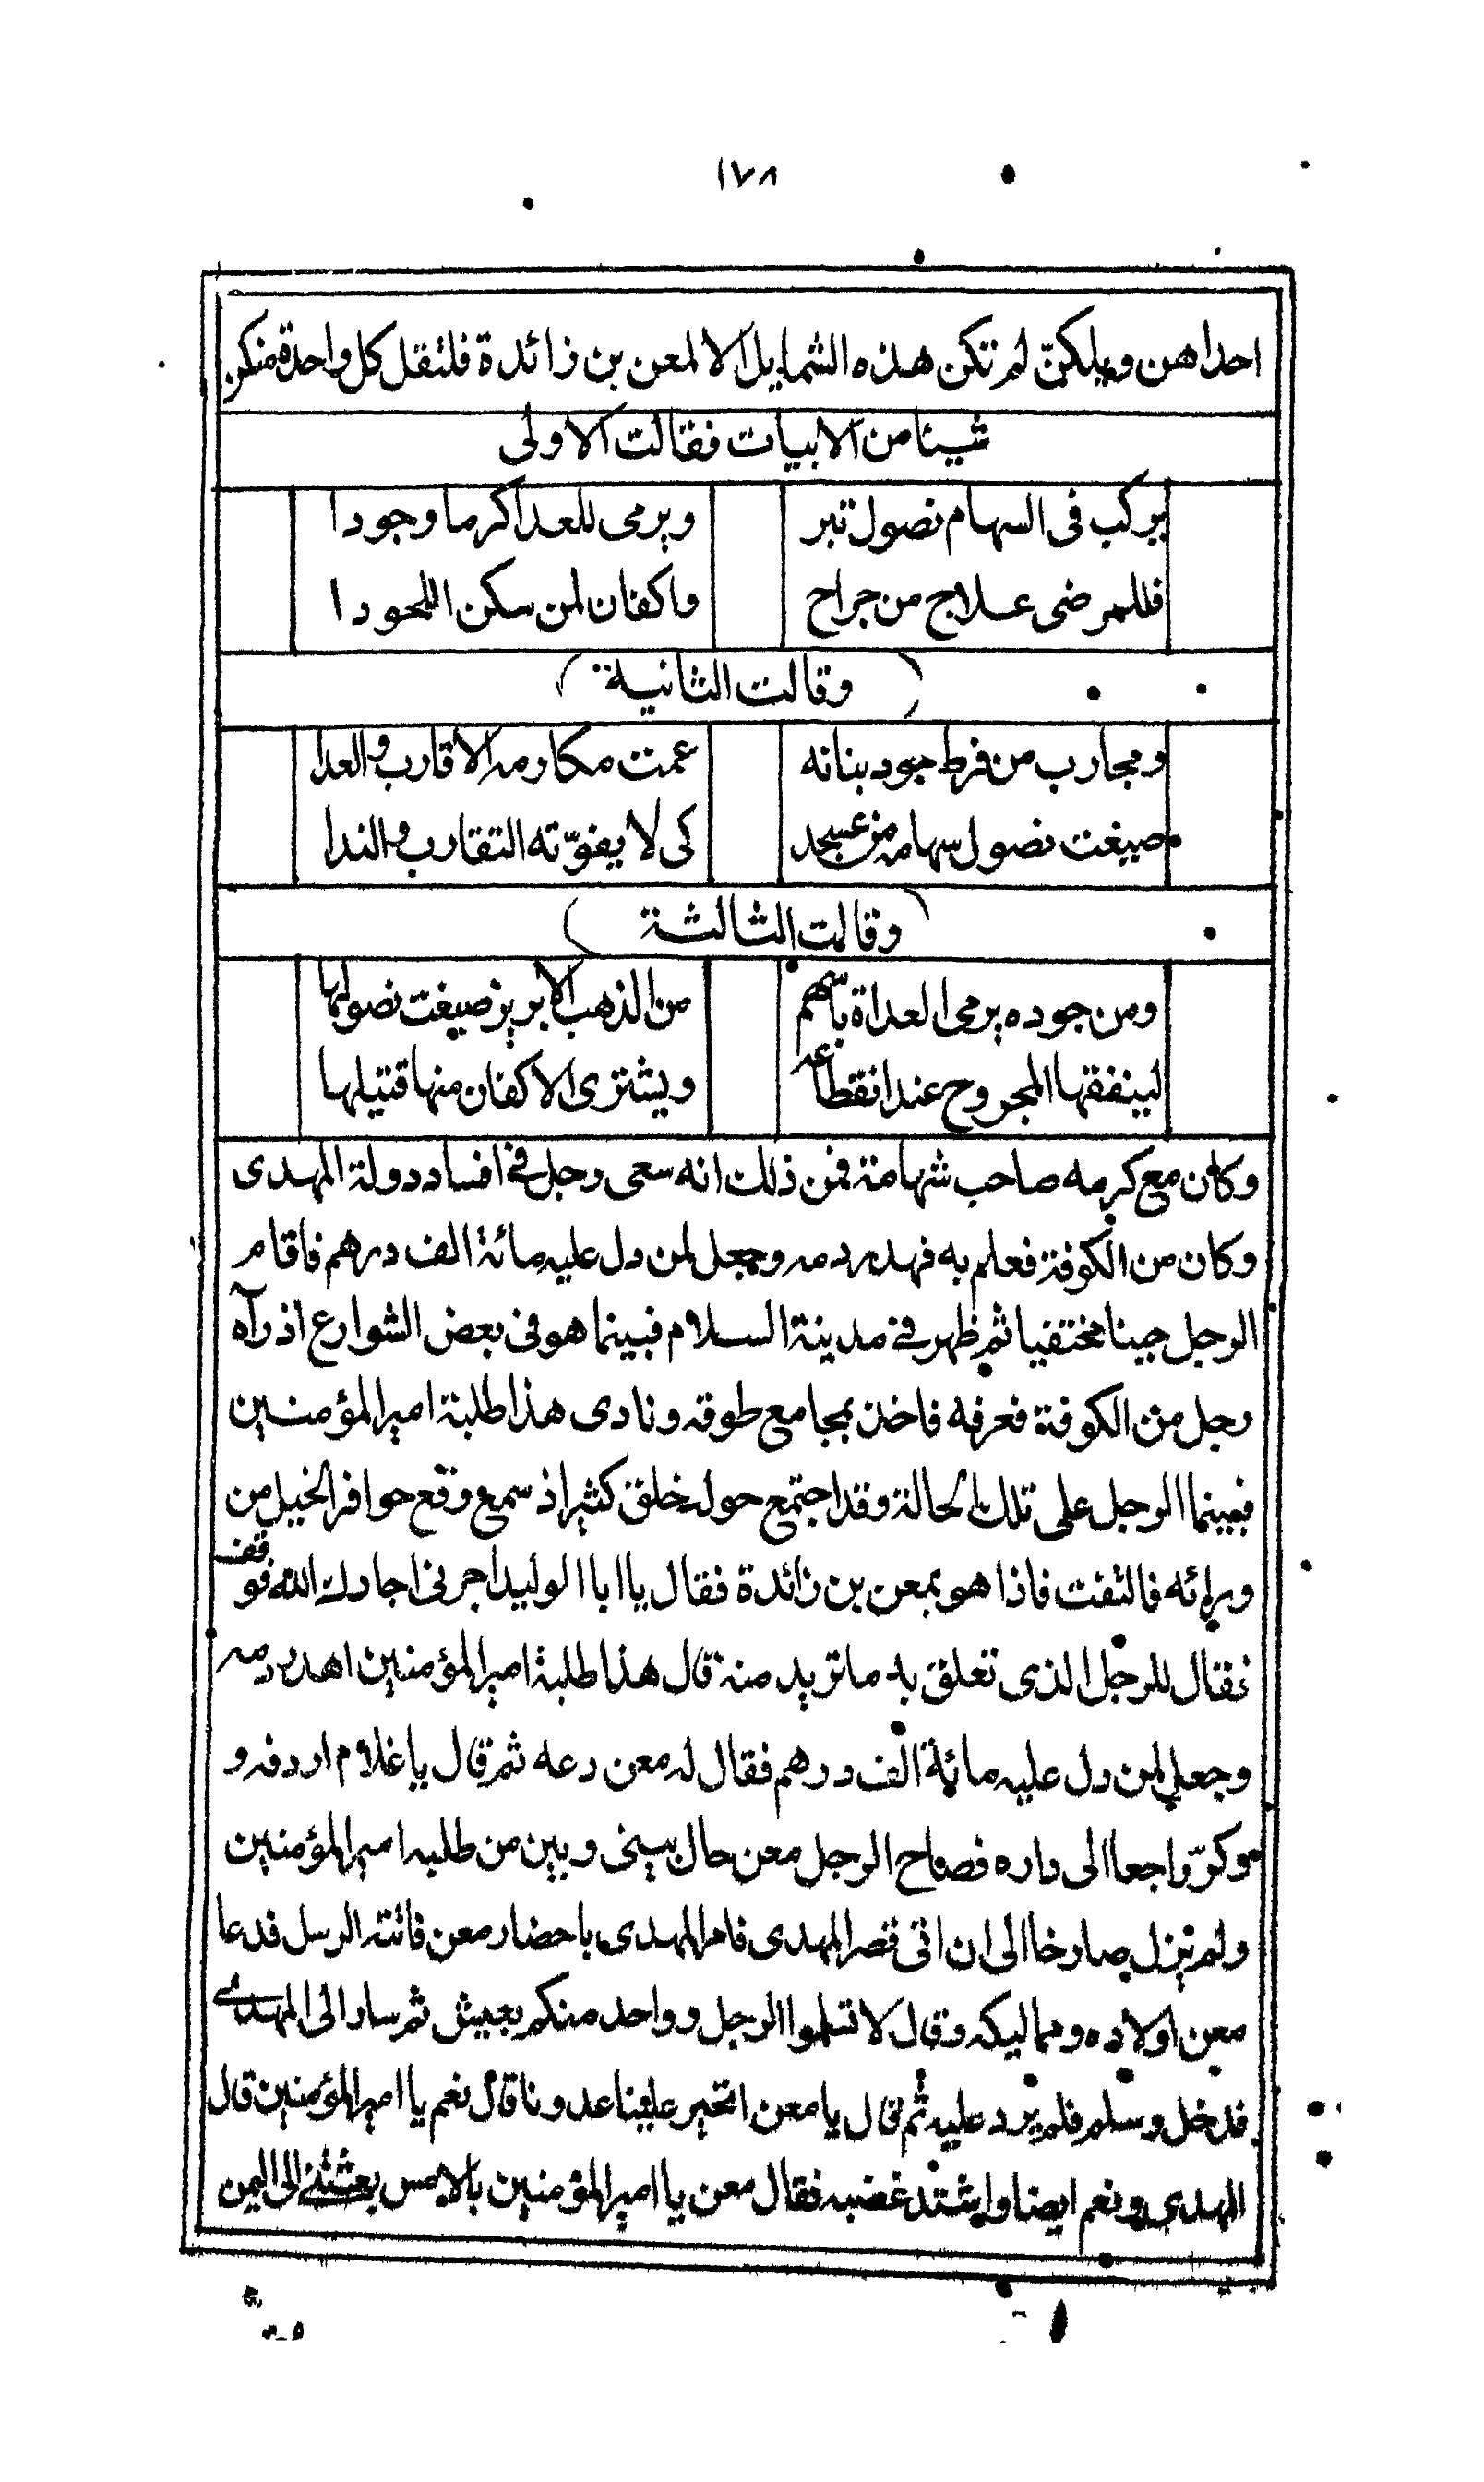 ١٧٨
احداهن ويلكنّ لم تكن هذه الشمايل الا لمعن بن زائدة فلتقل كل واحدة منكن
شيئا من الابيات فقالت الاولى
يركب فى السهام نصول تبر
ويرمى للعدا كرما وجودا
فللمرضى علاج من جراح
واكفان لمن سكن اللحودا
(وقالت الثانية)
ومحارب من فرط جود بنانه
عمت مكارمه الاقارب والعدا
صيغت نصول سهامه من عسجد
كى لا يفوّته التقارب والندا
(وقالت الثالثة)
ومن جوده يرمى العداة باسهم
من الذهب الابريز صيغت نصولها
لينفقها المجروح عند انقطاعه
ويشترى الاكفان منها قتيلها
وكان مع كرمه صاحب شهامة فمن ذلك انه سعى رجل فى افساد دولة المهدى
وكان من الكوفة فعلم به فهدر دمه وجعل لمن دل عليه مائة الف درهم فاقام
الرجل حينا مختفيا ثم ظهر فى مدينة السلام فبينما هو فى بعض الشوارع اذ رآه
رجل من الكوفة فعرفه فاخذ بمجامع طوقه ونادى هذا طلبة امير المؤمنين
فبينما الرجل على تلك الحالة وقد اجتمع حوله خلق كثير اذ سمع وقع حوافر الخيل من
ورائه فالتفت فاذا هو بمعن بن زائدة فقال يا ابا الوليد اجرنى اجارك الله فوقف
فقال للرجل الذى تعلق به ما تريد منه قال هذا طلبة امير المؤمنين اهدر دمه
وجعل لمن دل عليه مائة الف درهم فقال له معن دعه ثم قال يا غلام اردفه و
وكرّ راجعا الى داره فصاح الرجل معن حال بينى وبين من طلبه امير المؤمنين
ولم يزل صارخا الى ان اتى قصر المهدى فامر المهدى باحضار معن فاتته الرسل فدعا
معن اولاده ومماليكه وقال لا تسلموا الرجل وواحد منكم يعيش ثم سار الى المهدى
فدخل وسلم فلم يرد عليه ثم قال يا معن اتجير علينا عدونا قال نعم يا امير المؤمنين قال
المهدى ونعم ايضا واشتد غضبه فقال معن يا امير المؤمنين بالامس بعثتنى الى اليمن